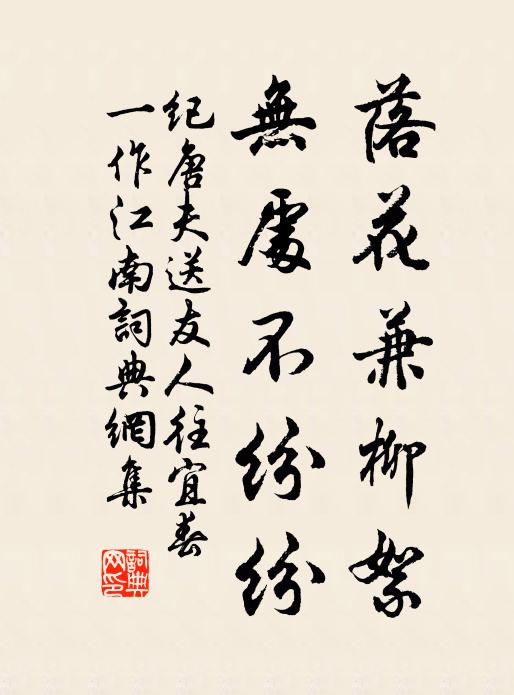 落花兼柳絮
無處不紛紛
紀唐夫送友人往宜春
一作江南詞典網集
詞典網印